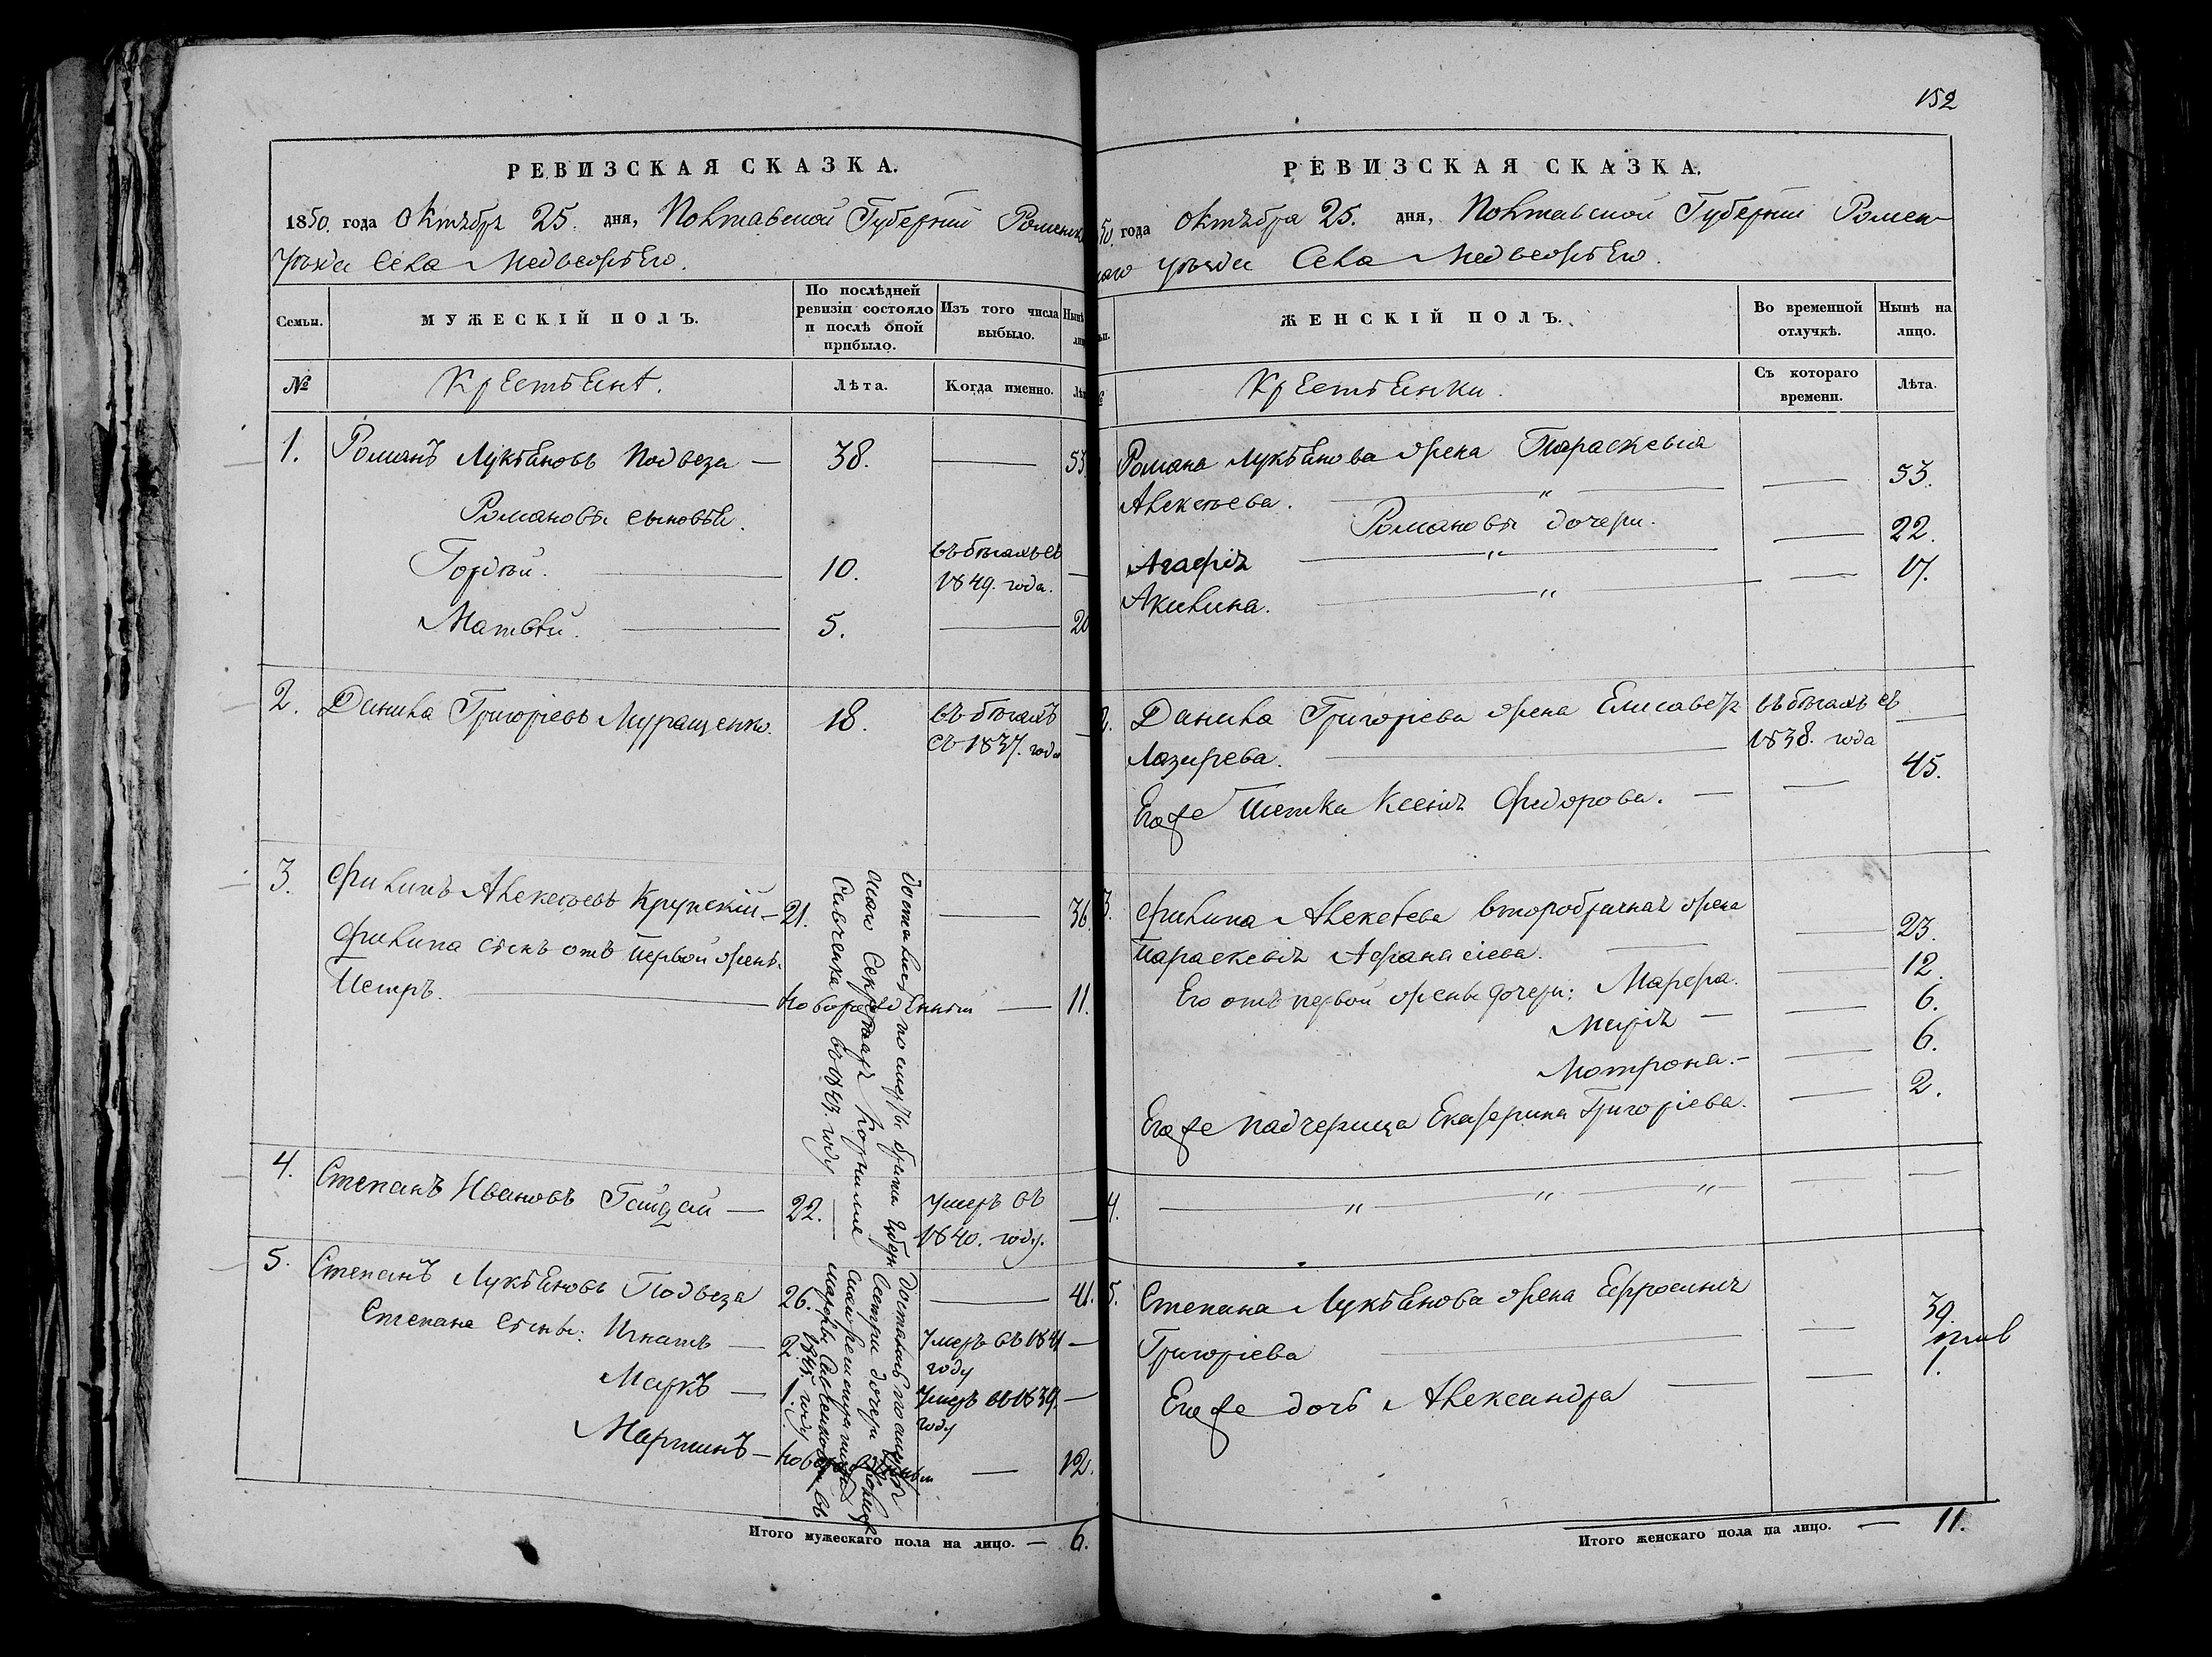 152
РЕВИЗСКАЯ СКАЗКА.
1850. года Октября 25. дня, Полтавской Губерніи Роменск
Уѣзда Села Медвежьего.
Семьи.
МУЖЕСКІЙ ПОЛЪ.
По послѣдней ревизіи состояло и послѣ оной прибыло.
Изъ того числа выбыло.
Нынѣ
№
Крестьяне.
Лѣта.
Когда именно.
1. Романъ Лукьяновъ Подвеза — 38. — 53
Романовы сыновья.
Гордѣй. — 10. въ бѣгахъ съ 1849. года. —
Матвѣй. — 5. — 20
2. Данила Григорьевъ Муращенко. 18. въ бѣгахъ съ 1837. года —
3. Филипъ Алексѣевъ Крупскій — 21. — 36.
Филипа сынъ отъ первой жены.
Петръ. — новорожденный — 11.
4. Степанъ Ивановъ Гайдай — 22. — Умеръ въ 1840. году. —
5. Степанъ Лукьяновъ Подвеза 26. — 41.
Степана сыны: Игнатъ — 2. Умеръ въ 1841 году —
Маркъ — 1. Умеръ въ 1839. году —
Мартинъ — новорожденный — 12.
Достались по смерти брата Губерн
скаго Секретаря Корнилія
Савченка въ 1847. году
Достались по смерти
Сестры дочери
Итого мужескаго пола на лицо. — 6.
РЕВИЗСКАЯ СКАЗКА.
50. года Октября 25. дня, Полтавской Губерніи Ромен-
скаго уѣзда Села Медвежьего.
ЖЕНСКІЙ ПОЛЪ.
Во временной отлучкѣ.
Нынѣ на лицо.
Крестьянки.
Съ котораго времени.
Лѣта.
Романа Лукьянова жена Параскевія
Алексѣева. — " — — 53.
Романовы дочери.
Агафія — " — — 22.
Акилина. — " — — 17.
2. Данила Григорьева жена Елисавета въ бѣгахъ съ —
Лазарева. — 1838. года
Его же тетка Ксенія Федорова. — — 45.
3. Филипа Алексѣева второбрачная жена
Параскевія Афанасіева. — — 23.
Его отъ первой жены дочери: Марфа. — 12.
Марія — — 6.
Мотрона. — — 6.
Его же падчерица Екатерина Григоріева. — 2.
4. — " — " — " — — —
5. Степана Лукьянова жена Ефросинія
Григоріева — — 39.
Его же дочь Александра — — 1.
Итого женскаго пола на лицо. — 11.